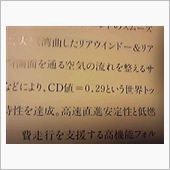 のスムーズ
湾曲したリアウインドー&リア
側面を通る空気の流れを整えるサ
などにより、CD値=0.29という世界トッ
特性を達成。高速直進安定性と低燃
費走行を支援する高機能フォル